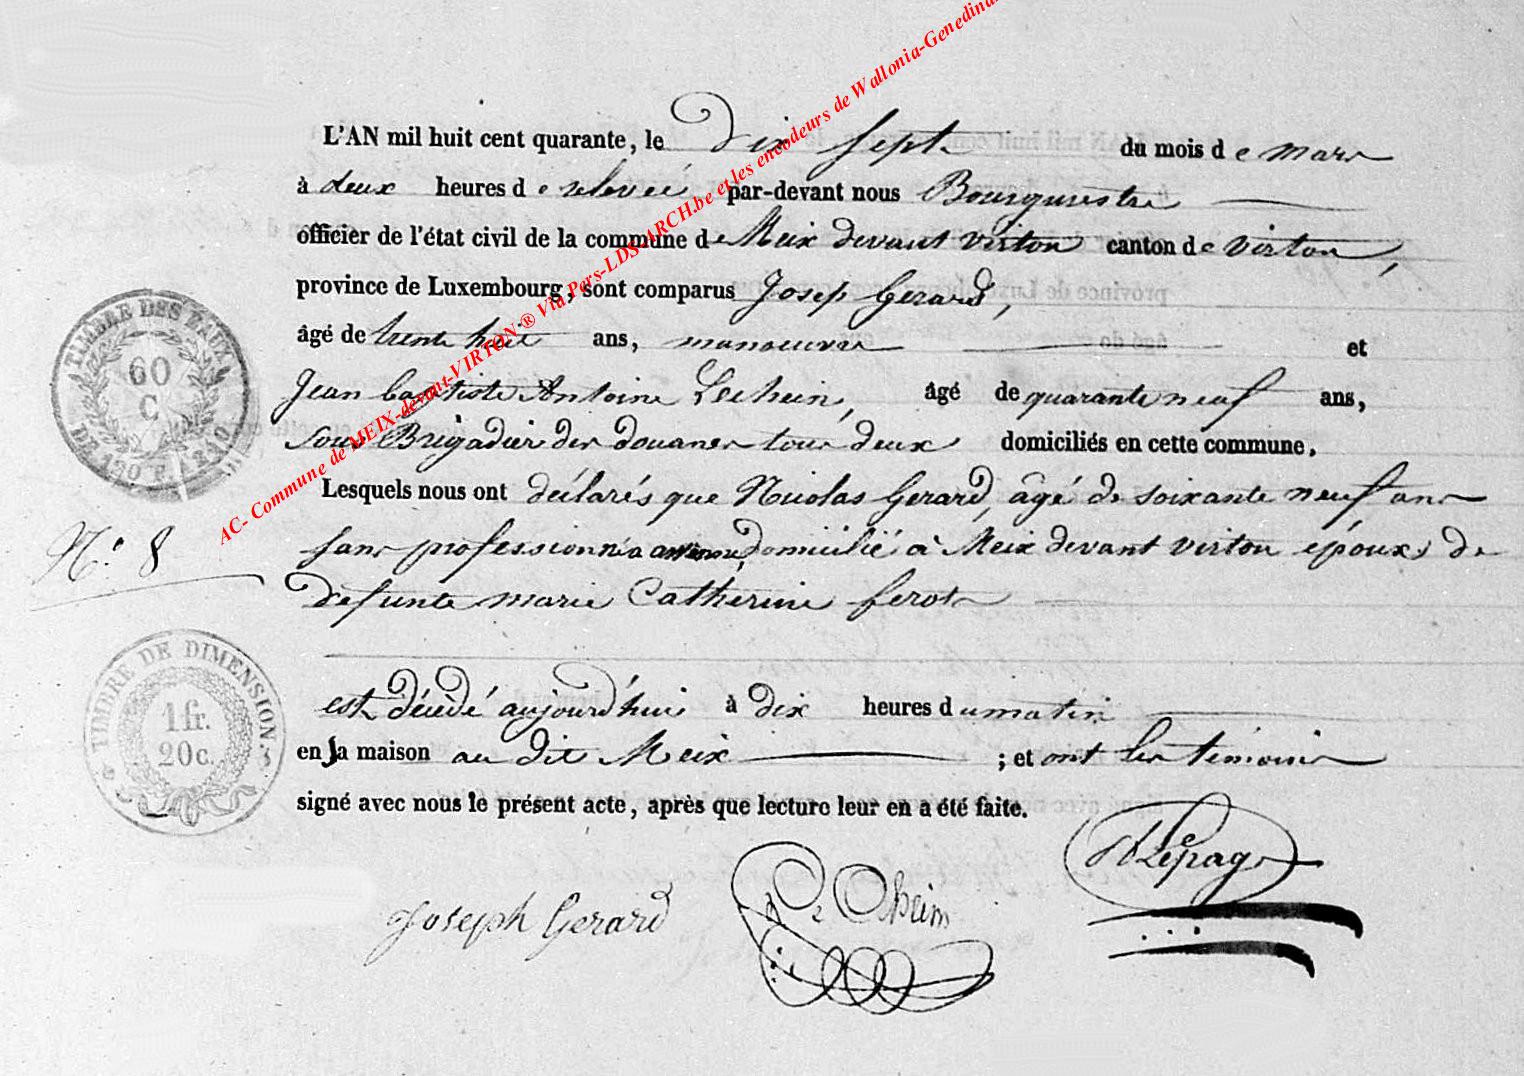 L'AN mil huit cent quarante, le dix sept du mois de mars
à deux heures de relevée par-devant nous Bourgmestre
officier de l'état civil de la commune de Meix devant virton canton de virton,
province de Luxembourg, sont comparus Josep Gerard,
âgé de trente huit ans, manoeuvre et
Jean Baptiste Antoine Lechein, âgé de quarante neuf ans,
sous Brigadier des douanes tous deux domiciliés en cette commune.
Lesquels nous ont déclarés que Nicolas Gerard, âgé de soixante neuf ans
N.° 8
sans profession domicilié à Meix devant virton époux de
defunte marie Catherine ferot
est décédé aujourd'hui à dix heures du matin
en sa maison au dit Meix ; et ont les témoins
signé avec nous le présent acte, après que lecture leur en a été faite.
Joseph Gerard
Lepage
TIMBRE DES
60
C
TIMBRE DE DIMENSION.
1 fr.
20c.
AC- Commune de MEIX-devant-VIRTON ® Via Pers-LDS-ARCH.be et les encodeurs de Wallonia-Genedina